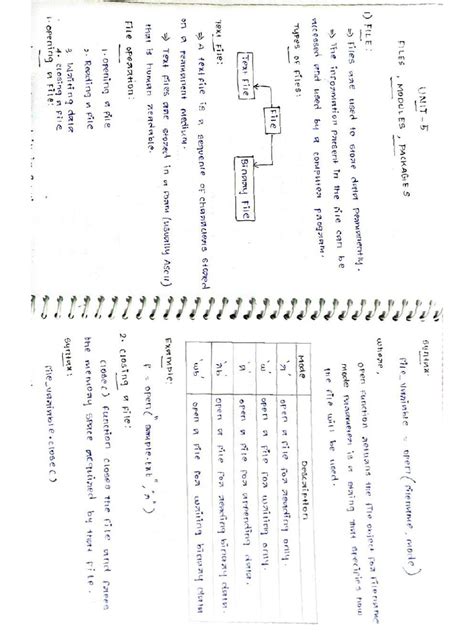 UNIT - 5
FILES, MODULES, PACKAGES
1) FILE:
⇒ Files are used to store data permanently.
⇒ The information present in the file can be
accessed and used by a computer program.
Types of Files:
File
Text File
Binary File
Text File:
⇒ A text file is a sequence of characters stored
on a permanent medium.
⇒ Text files are stored in a form (usually ASCII)
that is human readable.
File operation:
1. opening a file
2. Reading a file
3. Writing data
4. closing a file
1. opening a file:
Syntax:
file_variable = open(filename, mode)
where,
open function returns the file object for filename
mode parameter is a string that specifies how
the file will be used.
Mode Description
'r' open a file for reading only.
'w' open a file for writing only.
'a' open a file for appending data.
'rb' open a file for reading binary data.
'wb' open a file for writing binary data
Example:
F = open("sample.txt", "r")
2. closing a file:
close() function closes the file and frees
the memory space acquired by that file.
Syntax:
file_variable.close()